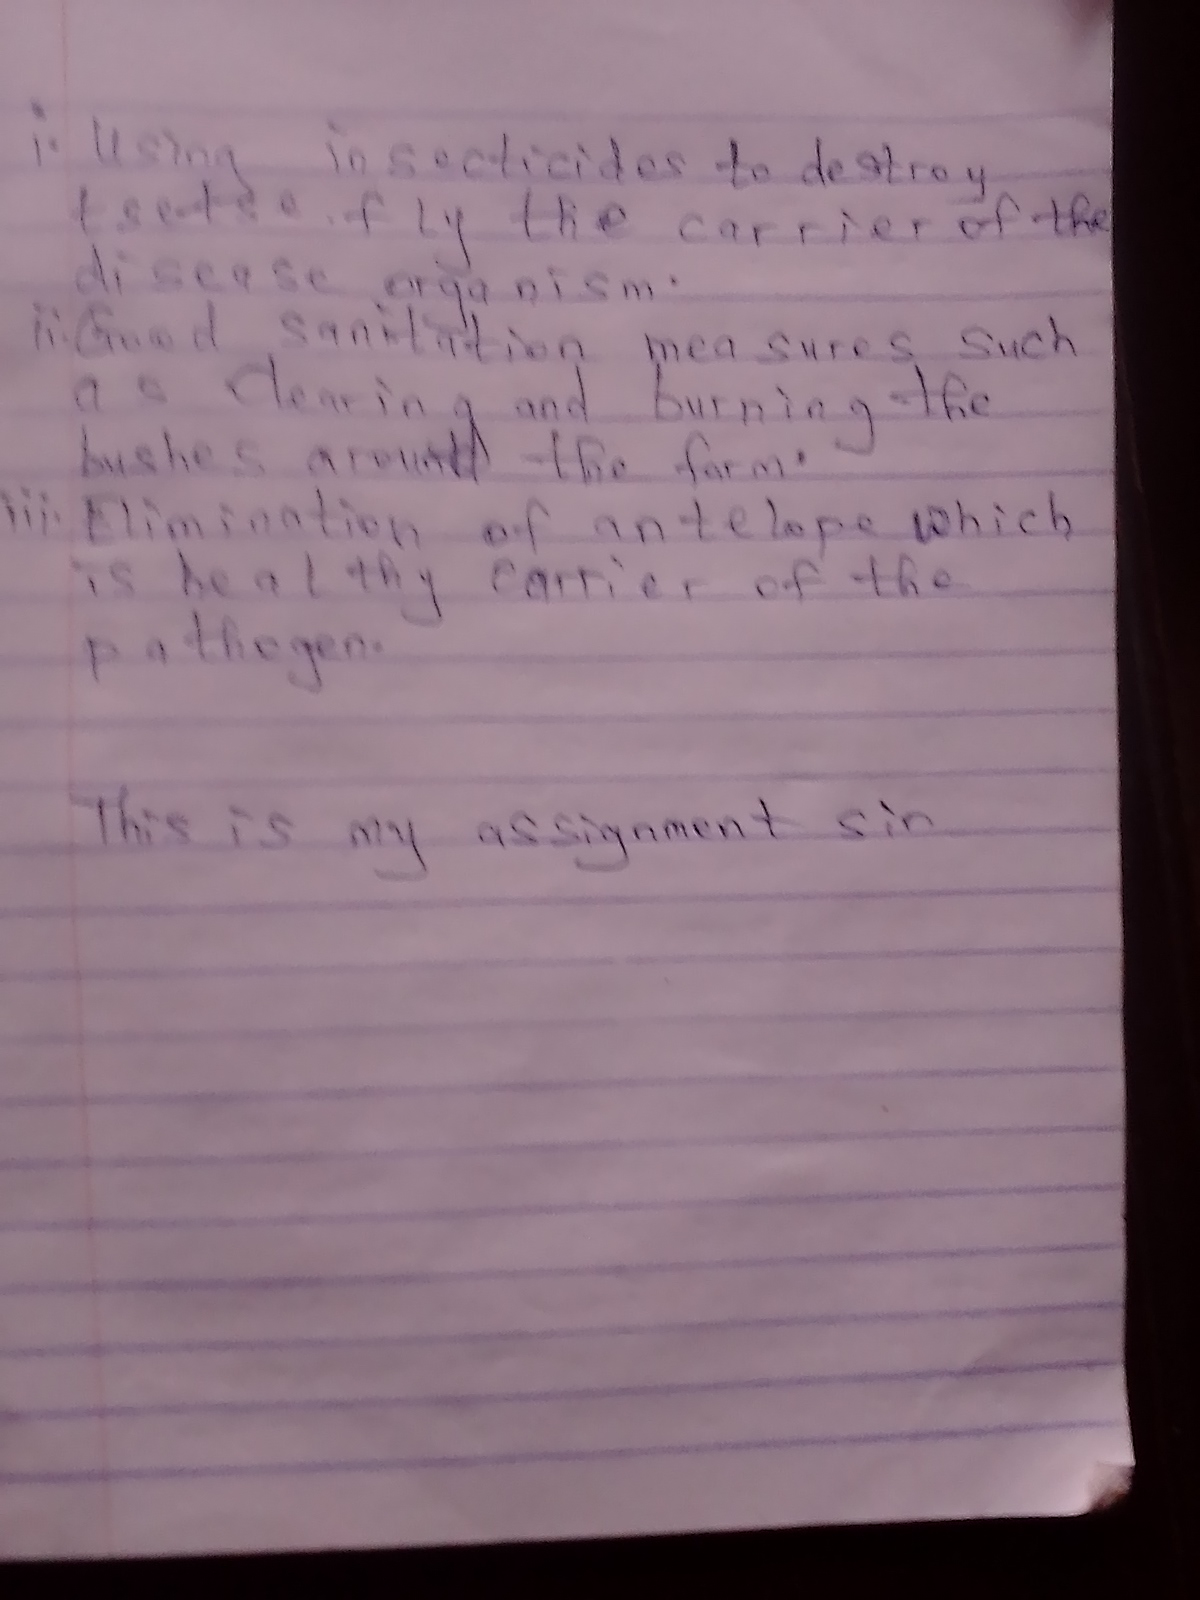 i. Using insecticides to destroy
tsetse fly the carrier of the
disease organism.
ii. Good sanitation measures such
as clearing and burning the
bushes around the farm.
iii. Elimination of antelope which
is healthy carrier of the
pathogen.
This is my assignment sir